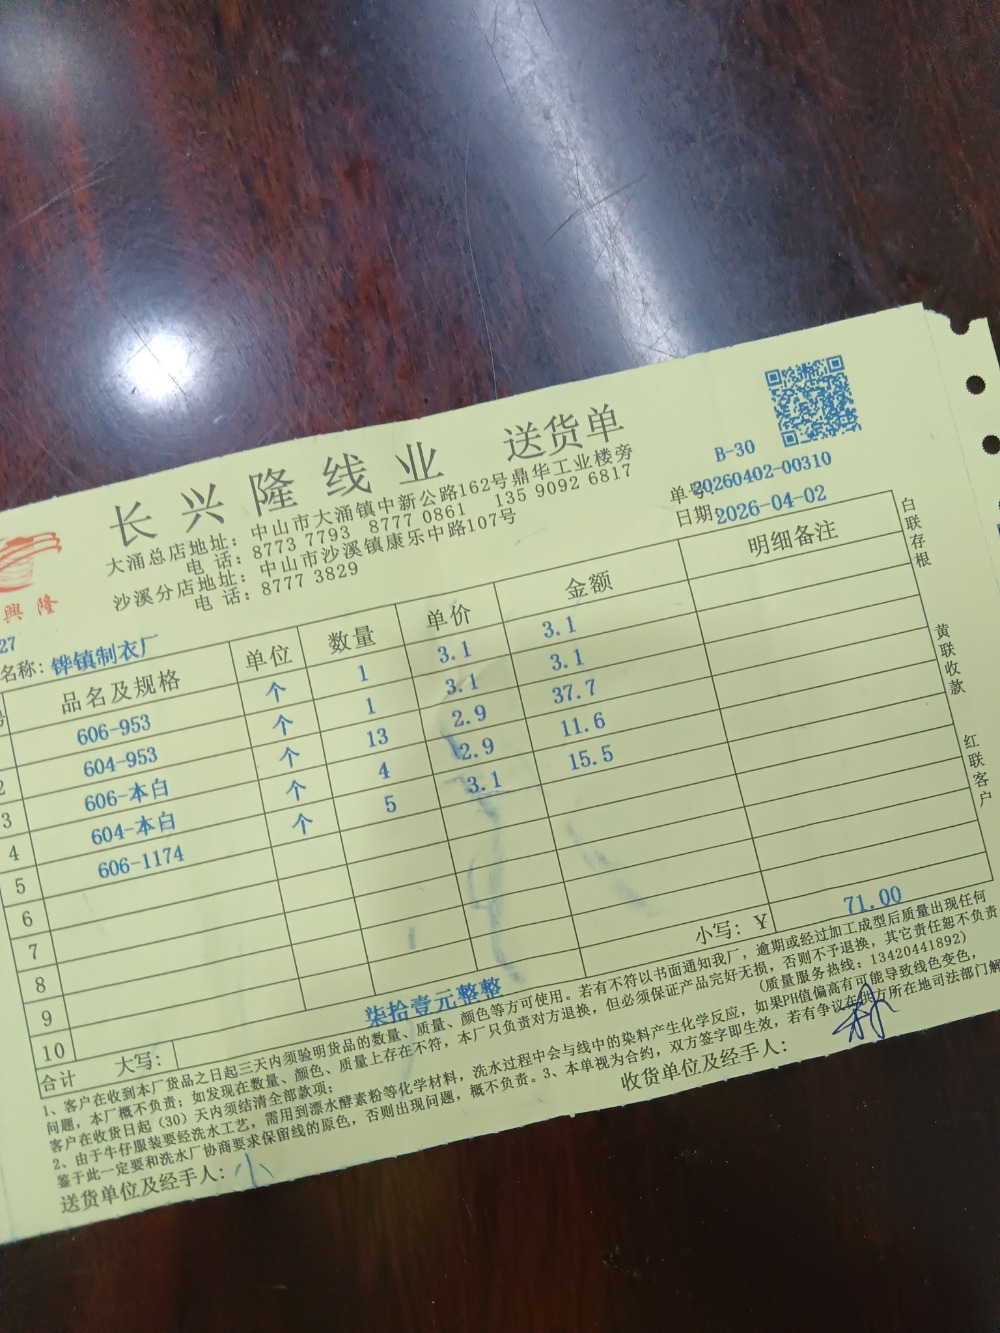 长兴隆线业 送货单
大涌总店地址：中山市大涌镇中新公路162号鼎华工业楼旁
电话：8773 7793 8777 0861 135 9092 6817
沙溪分店地址：中山市沙溪镇康乐中路107号
电话：8777 3829
興隆
B-30
单号：20260402-00310
日期：2026-04-02
27
名称：铧镇制衣厂
品名及规格 单位 数量 单价 金额 明细备注
606-953 个 1 3.1 3.1
2 604-953 个 1 3.1 3.1
3 606-本白 个 13 2.9 37.7
4 604-本白 个 4 2.9 11.6
5 606-1174 个 5 3.1 15.5
6
7
8
9
10
合计 大写：柒拾壹元整整 小写：￥ 71.00
1、客户在收到本厂货品之日起三天内须验明货品的数量、质量、颜色等方可使用。若有不符以书面通知我厂，逾期或经过加工成型后质量出现任何
问题，本厂概不负责；如发现在数量、颜色、质量上存在不符，本厂只负责对方退换，但必须保证产品完好无损，否则不予退换，其它责任恕不负责
客户在收货日起（30）天内须结清全部款项； （质量服务热线：13420441892）
2、由于牛仔服装要经洗水工艺，需用到漂水酵素粉等化学材料，洗水过程中会与线中的染料产生化学反应，如果PH值偏高有可能导致线色变色，
鉴于此一定要和洗水厂协商要求保留线的原色，否则出现问题，概不负责。3、本单视为合约，双方签字即生效，若有争议在供方所在地司法部门解
送货单位及经手人：小
收货单位及经手人：
白联存根
黄联收款
红联客户